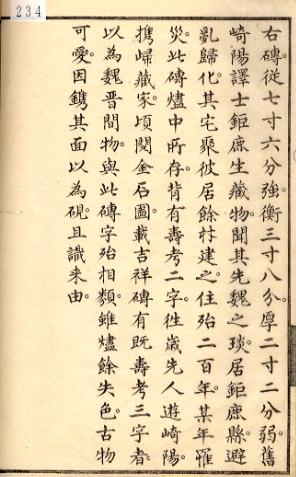 234
右磚從七寸六分強。衡三寸八分。厚二寸二分弱。舊
崎陽譯士鉅鹿生藏物。聞其先魏之琰。居鉅鹿縣。避
亂歸化。其宅聚彼居餘材建之。住殆二百年。某年罹
災。此磚燼中所存。背有壽考二字。徃歳先人遊崎陽。
攜歸藏家。頃閱金石圖。載吉祥磚有既壽考三字者。
以為魏晉間物。與此磚字殆相類。雖燼餘失色。古物
可愛。因鐫其面以為硯。且識来由。